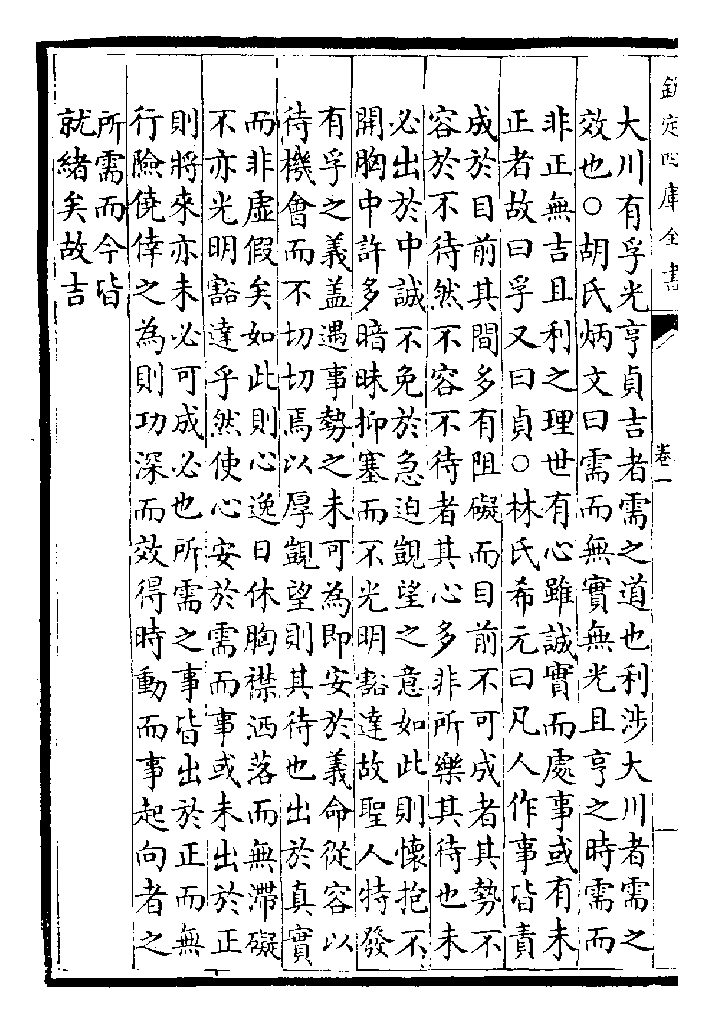 欽定四庫全書
卷一
大川有孚光亨貞吉者需之道也利涉大川者需之
效也○胡氏炳文曰需而無實無光且亨之時需而
非正無吉且利之理世有心雖誠實而處事或有未
正者故曰孚又曰貞○林氏希元曰凡人作事皆責
成於目前其間多有阻礙而目前不可成者其勢不
容於不待然不容不待者其心多非所樂其待也未
必出於中誠不免於急迫覬望之意如此則懷抱不
開胸中許多暗昧抑塞而不光明豁達故聖人特發
有孚之義蓋遇事勢之未可為即安於義命從容以
待機會而不切切焉以厚覬望則其待也出於真實
而非虛假矣如此則心逸日休胸襟洒落而無滯礙
不亦光明豁達乎然使心安於需而事或未出於正
則將來亦未必可成必也所需之事皆出於正而無
行險僥倖之為則功深而效得時動而事起向者之
所需而今皆
就緒矣故吉